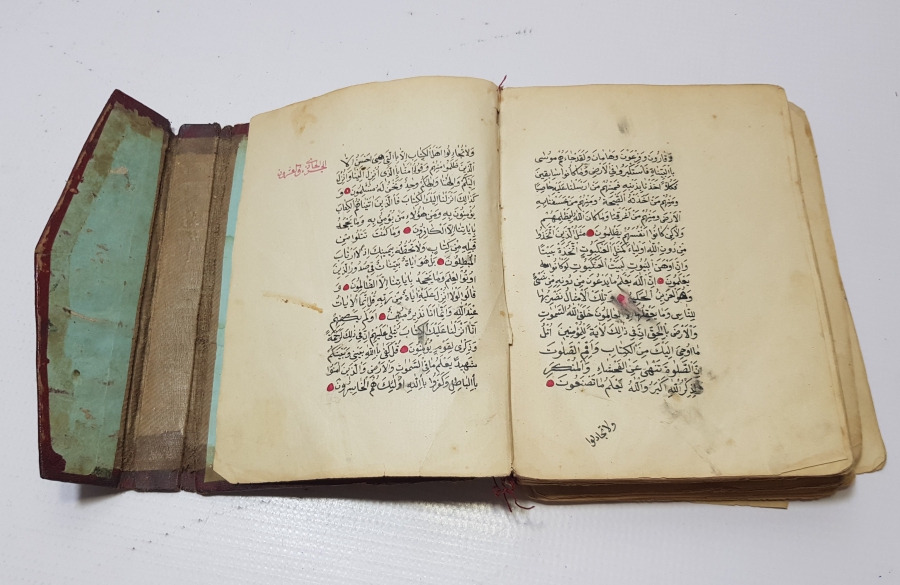 وَقَارُونَ وَفِرْعَوْنَ وَهَامَانَ وَلَقَدْ جَاءَهُمْ مُوسَى
بِالْبَيِّنَاتِ فَاسْتَكْبَرُوا فِي الْاَرْضِ وَمَا كَانُوا سَابِقِينَ
فَكُلًّا اَخَذْنَا بِذَنْبِهِ فَمِنْهُمْ مَنْ اَرْسَلْنَا عَلَيْهِ حَاصِبًا
وَمِنْهُمْ مَنْ اَخَذَتْهُ الصَّيْحَةُ وَمِنْهُمْ مَنْ خَسَفْنَا بِهِ
الْاَرْضَ وَمِنْهُمْ مَنْ اَغْرَقْنَا وَمَا كَانَ اللهُ لِيَظْلِمَهُمْ
وَلَكِنْ كَانُوا اَنْفُسَهُمْ يَظْلِمُونَ مَثَلُ الَّذِينَ اتَّخَذُوا
مِنْ دُونِ اللهِ اَوْلِيَاءَ كَمَثَلِ الْعَنْكَبُوتِ اتَّخَذَتْ بَيْتًا
وَاِنَّ اَوْهَنَ الْبُيُوتِ لَبَيْتُ الْعَنْكَبُوتِ لَوْ كَانُوا
يَعْلَمُونَ اِنَّ اللهَ يَعْلَمُ مَا يَدْعُونَ مِنْ دُونِهِ مِنْ شَيْءٍ
وَهُوَ الْعَزِيزُ الْحَكِيمُ وَتِلْكَ الْاَمْثَالُ نَضْرِبُهَا
لِلنَّاسِ وَمَا يَعْقِلُهَا اِلَّا الْعَالِمُونَ خَلَقَ اللهُ السَّمَوَاتِ
وَالْاَرْضَ بِالْحَقِّ اِنَّ فِي ذَلِكَ لَاٰيَةً لِلْمُؤْمِنِينَ اُتْلُ
مَا اُوحِيَ اِلَيْكَ مِنَ الْكِتَابِ وَاَقِمِ الصَّلٰوةَ
اِنَّ الصَّلٰوةَ تَنْهَى عَنِ الْفَحْشَاءِ وَالْمُنْكَرِ
وَلَذِكْرُ اللهِ اَكْبَرُ وَاللهُ يَعْلَمُ مَا تَصْنَعُونَ
ولا تجادلوا
وَلَا تُجَادِلُوا اَهْلَ الْكِتَابِ اِلَّا بِالَّتِي هِيَ اَحْسَنُ اِلَّا
الَّذِينَ ظَلَمُوا مِنْهُمْ وَقُولُوا اٰمَنَّا بِالَّذِي اُنْزِلَ اِلَيْنَا وَاُنْزِلَ
اِلَيْكُمْ وَاِلٰهُنَا وَاِلٰهُكُمْ وَاحِدٌ وَنَحْنُ لَهُ مُسْلِمُونَ وَ
كَذَلِكَ اَنْزَلْنَا اِلَيْكَ الْكِتَابَ فَالَّذِينَ اٰتَيْنَاهُمُ الْكِتَابَ
يُؤْمِنُونَ بِهِ وَمِنْ هٰؤُلَاءِ مَنْ يُؤْمِنُ بِهِ وَمَا يَجْحَدُ
بِاٰيَاتِنَا اِلَّا الْكَافِرُونَ وَمَا كُنْتَ تَتْلُوا مِنْ
قَبْلِهِ مِنْ كِتَابٍ وَلَا تَخُطُّهُ بِيَمِينِكَ اِذًا لَارْتَابَ
الْمُبْطِلُونَ بَلْ هُوَ اٰيَاتٌ بَيِّنَاتٌ فِي صُدُورِ الَّذِينَ
اُوتُوا الْعِلْمَ وَمَا يَجْحَدُ بِاٰيَاتِنَا اِلَّا الظَّالِمُونَ
وَقَالُوا لَوْلَا اُنْزِلَ عَلَيْهِ اٰيَةٌ مِنْ رَبِّهِ قُلْ اِنَّمَا الْاٰيَاتُ
عِنْدَ اللهِ وَاِنَّمَا اَنَا نَذِيرٌ مُبِينٌ اَوَلَمْ يَكْفِهِمْ
اَنَّا اَنْزَلْنَا عَلَيْكَ الْكِتَابَ يُتْلَى عَلَيْهِمْ اِنَّ فِي ذَلِكَ لَرَحْمَةً
وَذِكْرَى لِقَوْمٍ يُؤْمِنُونَ قُلْ كَفَى بِاللهِ بَيْنِي وَبَيْنَكُمْ
شَهِيدًا يَعْلَمُ مَا فِي السَّمَوَاتِ وَالْاَرْضِ وَالَّذِينَ اٰمَنُوا
بِالْبَاطِلِ وَكَفَرُوا بِاللهِ اُولَئِكَ هُمُ الْخَاسِرُونَ